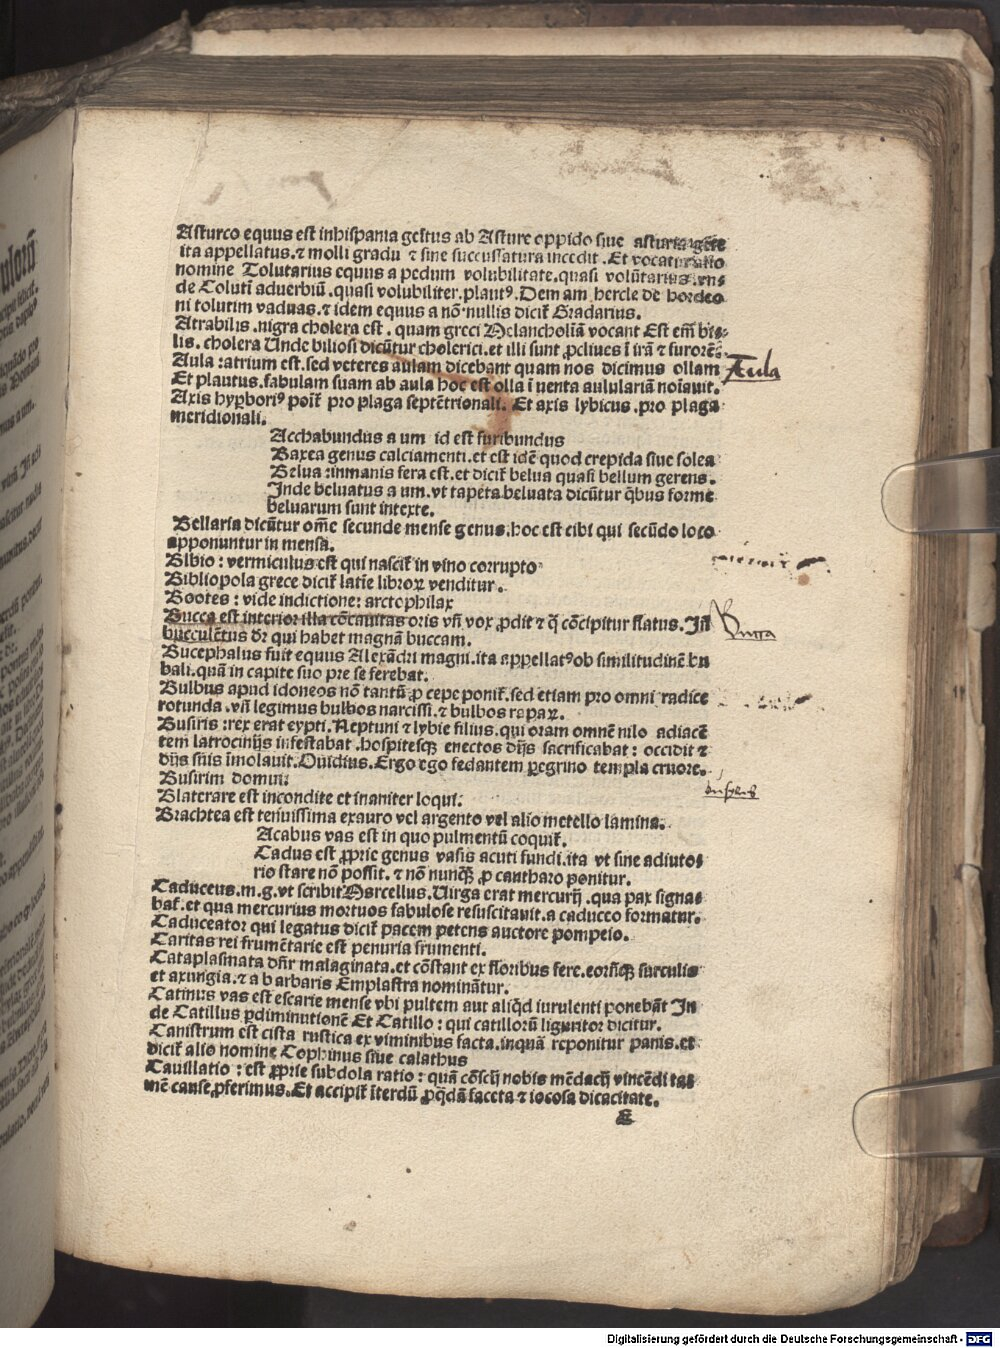 Asturco equus est inhispania gestus ab Asture oppido siue asturia gẽte
ita appellatus.⁊ molli gradu ⁊ sine succussatura incedit. Et vocatur alio
nomine Tolutarius equus a pedum volubilitate.quasi volũtarius.vn⸗
de Tolutĩ aduerbiũ.quasi volubiliter.plautꝰ. Dem am hercle de hordeo
ni tolutim vaduas.⁊ idem equus a nõ nullis dicit᷑ Gradarius.
Atrabilis.nigra cholera est. quam greci Melancholiã vocant Est em̃ bi⸗
lis. cholera Unde biliosi dicũtur cholerici.et illi sunt ꝓcliues ĩ irã ⁊ furorẽ⸗
Aula :atrium est.sed veteres aulam dicebant quam nos dicimus ollam
Et plautus.fabulam suam ab aula hoc est olla ĩ uenta aululariã noĩauit.
Axis hypboriꝰ poĩt᷑ pro plaga septẽtrionali. Et axis lybicus.pro plaga
meridionali.
Acchabundus a um id est furibundus
Baxea genus calciamenti.et est idẽ quod crepida siue solea
Belua :inmanis fera est.et dicit᷑ belua quasi bellum gerens.
Inde beluatus a um.vt tapeta beluata dicũtur q̃bus forme
beluarum sunt intexte.
Bellaria dicũtur om̃e secunde mense genus.hoc est cibi qui secũdo loco
apponuntur in mensa.
Bibio : vermiculus est qui nascit᷑ in vino corrupto
Bibliopola grece dicit᷑ latĩe libroꝝ venditur.
Bootes : vide indictione: arctophilax
Bucca est interior illa cõcauitas oris vñ vox ꝓdit ⁊ q̃ cõcipitur flatus. Iñ
bucculẽtus dr̃ qui habet magnã buccam.
Bucephalus fuit equus Alexãdri magni.ita appellatꝰ ob similitudinẽ bu
bali.quã in capite suo pre se ferebat.
Bulbus apud idoneos nõ tantũ ꝓ cepe ponit᷑.sed etiam pro omni radice
rotunda.vñ legimus bulbos narcissi.⁊ bulbos rapaꝝ.
Busiris :rex erat eypti.Neptuni ⁊ lybie filius.qui oram omnẽ nilo adiacẽ
tem latrocinijs infestabat.hospitesqꝫ enectos dijs sacrificabat : occidit ⁊
dijs suis ĩmolauit.Ouidius.Ergo ego fedantem ꝑegrino templa cruore.
Busirim domui:
Blaterare est incondite et inaniter loqui.
Brachtea est tenuissima exauro vel argento vel alio metello lamina.
Acabus vas est in quo pulmentũ coquit᷑.
Cadus est ꝓprie genus vasis acuti fundi.ita vt sine adiuto⸗
rio stare nõ possit.⁊ nõ nunqꝫ ꝓ cantharo ponitur.
Caduceus.m.g.vt scribit Marcellus.Uirga erat mercurij.qua pax signa⸗
bat᷑.et qua mercurius mortuos fabulose resuscitauit.a caduceo formatur.
Caduceator qui legatus dicit᷑ pacem petens auctore pompeio.
Caritas rei frumẽtarie est penuria frumenti.
Cataplasmata dn̄r malaginata.et cõstant ex floribus fere.eorũqꝫ surculis
et axungia.⁊ a barbaris Emplastra nominãtur.
Catinus vas est escarie mense vbi pultem aut aliq̃d iurulenti ponebãt In
de Catillus ꝑdiminutionẽ Et Catillo : qui catillorũ liguritor dicitur.
Canistrum est cista rustica ex viminibus facta.inquã reponitur panis.et
dicit᷑ alio nomine Cophinus siue calathus
Cauillatio : est ꝓprie subdola ratio : quã cõscij nobis mẽdacij vincẽdi ta⸗
mẽ cause ꝓferimus.Et accipit᷑ ĩterdũ ꝓ q̃dã faceta ⁊ iocosa dicacitate.
Aula
Bucca
busiris
Digitalisierung gefördert durch die Deutsche Forschungsgemeinschaft - DFG